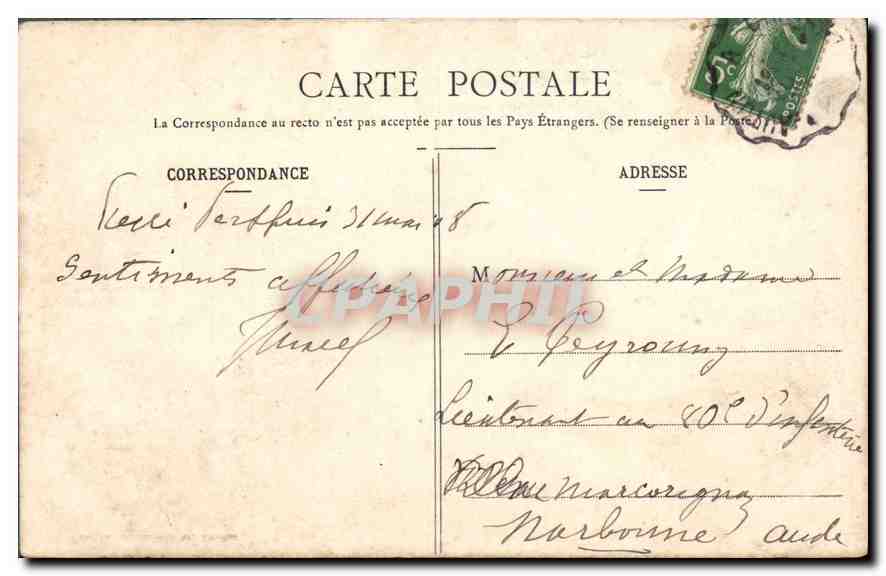 5c
POSTES
CARTE POSTALE
La Correspondance au recto n'est pas acceptée par tous les Pays Étrangers. (Se renseigner à la Poste
CORRESPONDANCE
31 mai 08
Sentiments
ADRESSE
Monsieur et Madame
E Peyrouny
Lieutenant au 80e d'infanterie
Marcorignan
Narbonne Aude
CPAPHIL